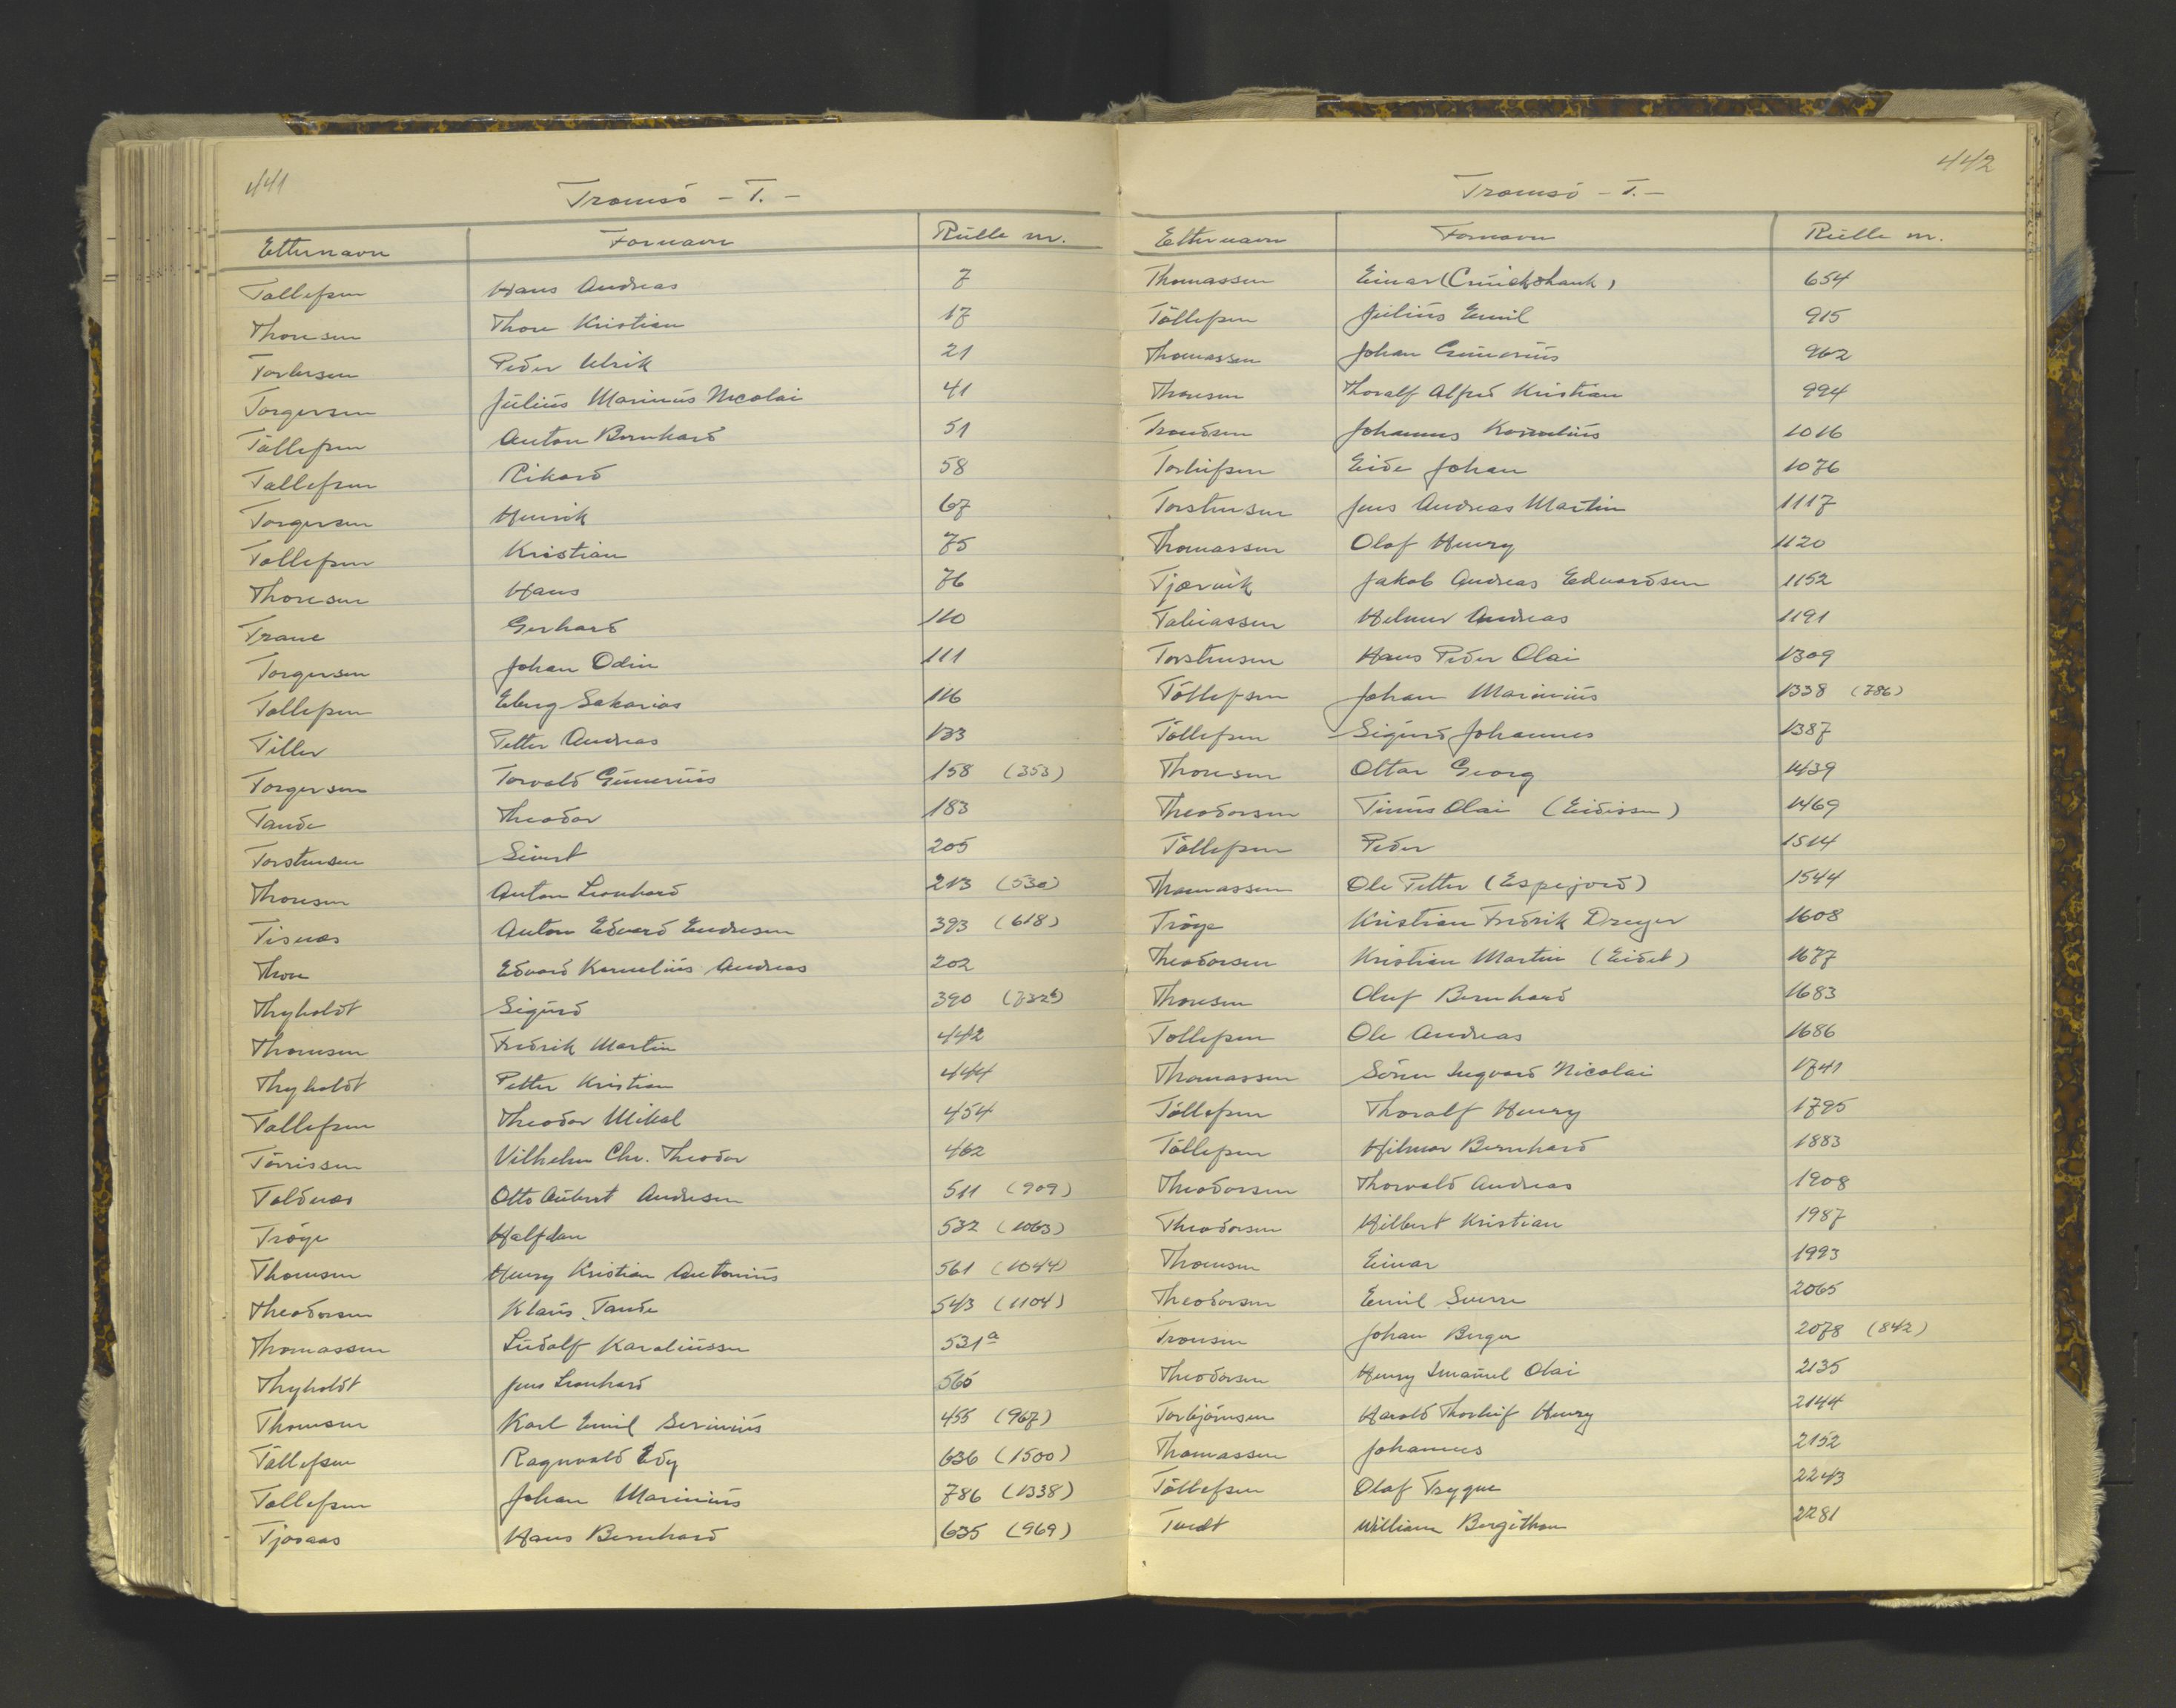 441
Tromsö - T. -
Etternavn Fornavn Rulle nr.
Tollefsen Hans Andreas 7
Thoresen Thore Kristian 17
Torbersen Peder Ulrik 21
Torgersen Julius Marinus Nicolai 41
Tollefsen Anton Bernhard 51
Tollefsen Rikard 58
Torgersen Henrik 67
Tollefsen Kristian 75
Thoresen Hans 76
Trane Gerhard 110
Torgersen Johan Odin 111
Tollefsen Eberg Sakarias 116
Tiller Petter Andreas 133
Torgersen Torvald Gunerius 158 (353)
Tande Theodor 183
Torstensen Sivert 205
Thoresen Anton Leonhard 213 (530)
Tisnæs Anton Edvard Endresen 393 (618)
Thore Edvard Kornelius Andreas 202
Thyholdt Sigurd 390
Thomsen Fredrik Martin 442
Thyholdt Petter Kristian 444
Tollefsen Theodor Mikal 454
Tönissen Vilhelm Chr. Theodor 462
Toldnæs Otto Aubert Andresen 511 (909)
Tröye Halfdan 532 (1063)
Thomsen Henry Kristian Antonius 561 (1044)
Theodorsen Klaus Tande 543 (1104)
Thomassen Ludolf Karoliussen 531a
Thyholdt Jens Leonhard 565
Thomsen Karl Emil Serinius 455 (967)
Tollefsen Ragnvald Edy 636 (1500)
Tollefsen Johan Marinius 786 (1338)
Tjosaas Hans Bernhard 635 (969)
442
Tromsö - T. -
Etternavn Fornavn Rulle nr.
Thomassen Einar (Cruickshank) 654
Tollefsen Julius Emil 915
Thomassen Johan Gunerius 962
Thoresen Thoralf Alfred Kristian 994
Trondsen Johannes Kornelius 1016
Torleifsen Eide Johan 1076
Torstensen Jens Andreas Martin 1117
Thomassen Olaf Henry 1120
Tjærvik Jakob Andreas Edvardsen 1152
Tobiassen Helmer Andreas 1191
Torstensen Hans Peder Olai 1309
Tollefsen Johan Marinius 1338 (786)
Tollefsen Sigurd Johannes 1387
Thoresen Ottar Georg 1439
Theodorsen Tinus Olai (Eidissen) 1469
Tollefsen Peder 1514
Thomassen Ole Petter (Espejord) 1544
Tröye Kristian Fredrik Dreyer 1608
Theodorsen Kristian Martin (Eidet) 1677
Thoresen Oluf Bernhard 1683
Tollefsen Ole Andreas 1686
Thomassen Sören Ingvard Nicolai 1741
Tollefsen Thoralf Henry 1795
Tollefsen Hilmar Bernhard 1883
Theodorsen Thorvald Andreas 1908
Theodorsen Hilbert Kristian 1987
Thomsen Einar 1993
Theodorsen Emil Sverre 2065
Tronsen Johan Berger 2078 (842)
Theodorsen Henry Imanuel Olai 2135
Torbjörnsen Harald Thorleif Henry 2144
Thomassen Johannes 2152
Tollefsen Olaf Trygve 2243
Tvedt William Bergithon 2281